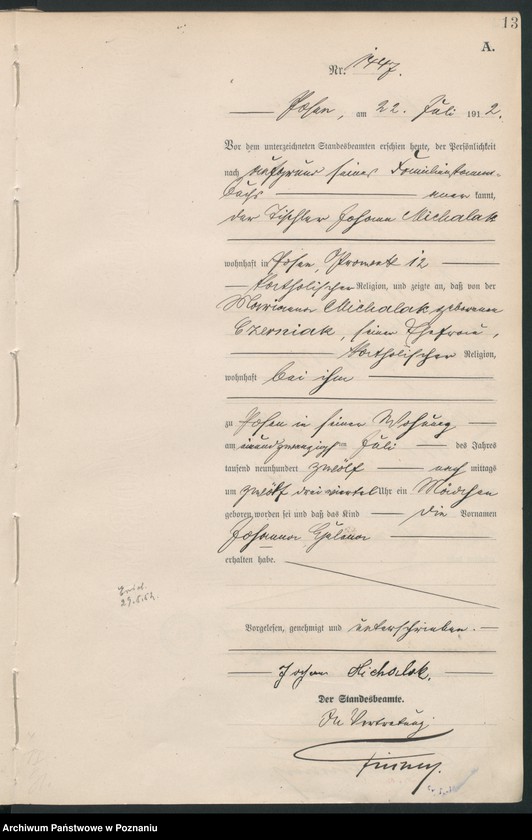 13
A.
Nr. 1447.
Posen, am 22. Juli 1912.
Vor dem unterzeichneten Standesbeamten erschien heute, der Persönlichkeit
nach aufgrund seines Familienstamm-
buchs anerkannt,
der Tischler Johann Michalak
wohnhaft in Posen, 12
katholischer Religion, und zeigte an, daß von der
Marianna Michalak geborenen
Czerniak, seiner Ehefrau,
katholischer Religion,
wohnhaft bei ihm
zu Posen in seiner Wohnung
am Juli des Jahres
tausend neunhundert zwölf nachmittags
um zwölf dreiviertel Uhr ein Mädchen
geboren worden sei und daß das Kind die Vornamen
Johanna Helena
erhalten habe.
Vorgelesen, genehmigt und unterschrieben.
Johann Michalak.
Der Standesbeamte.
In Vertretung
Archiwum Państwowe w Poznaniu